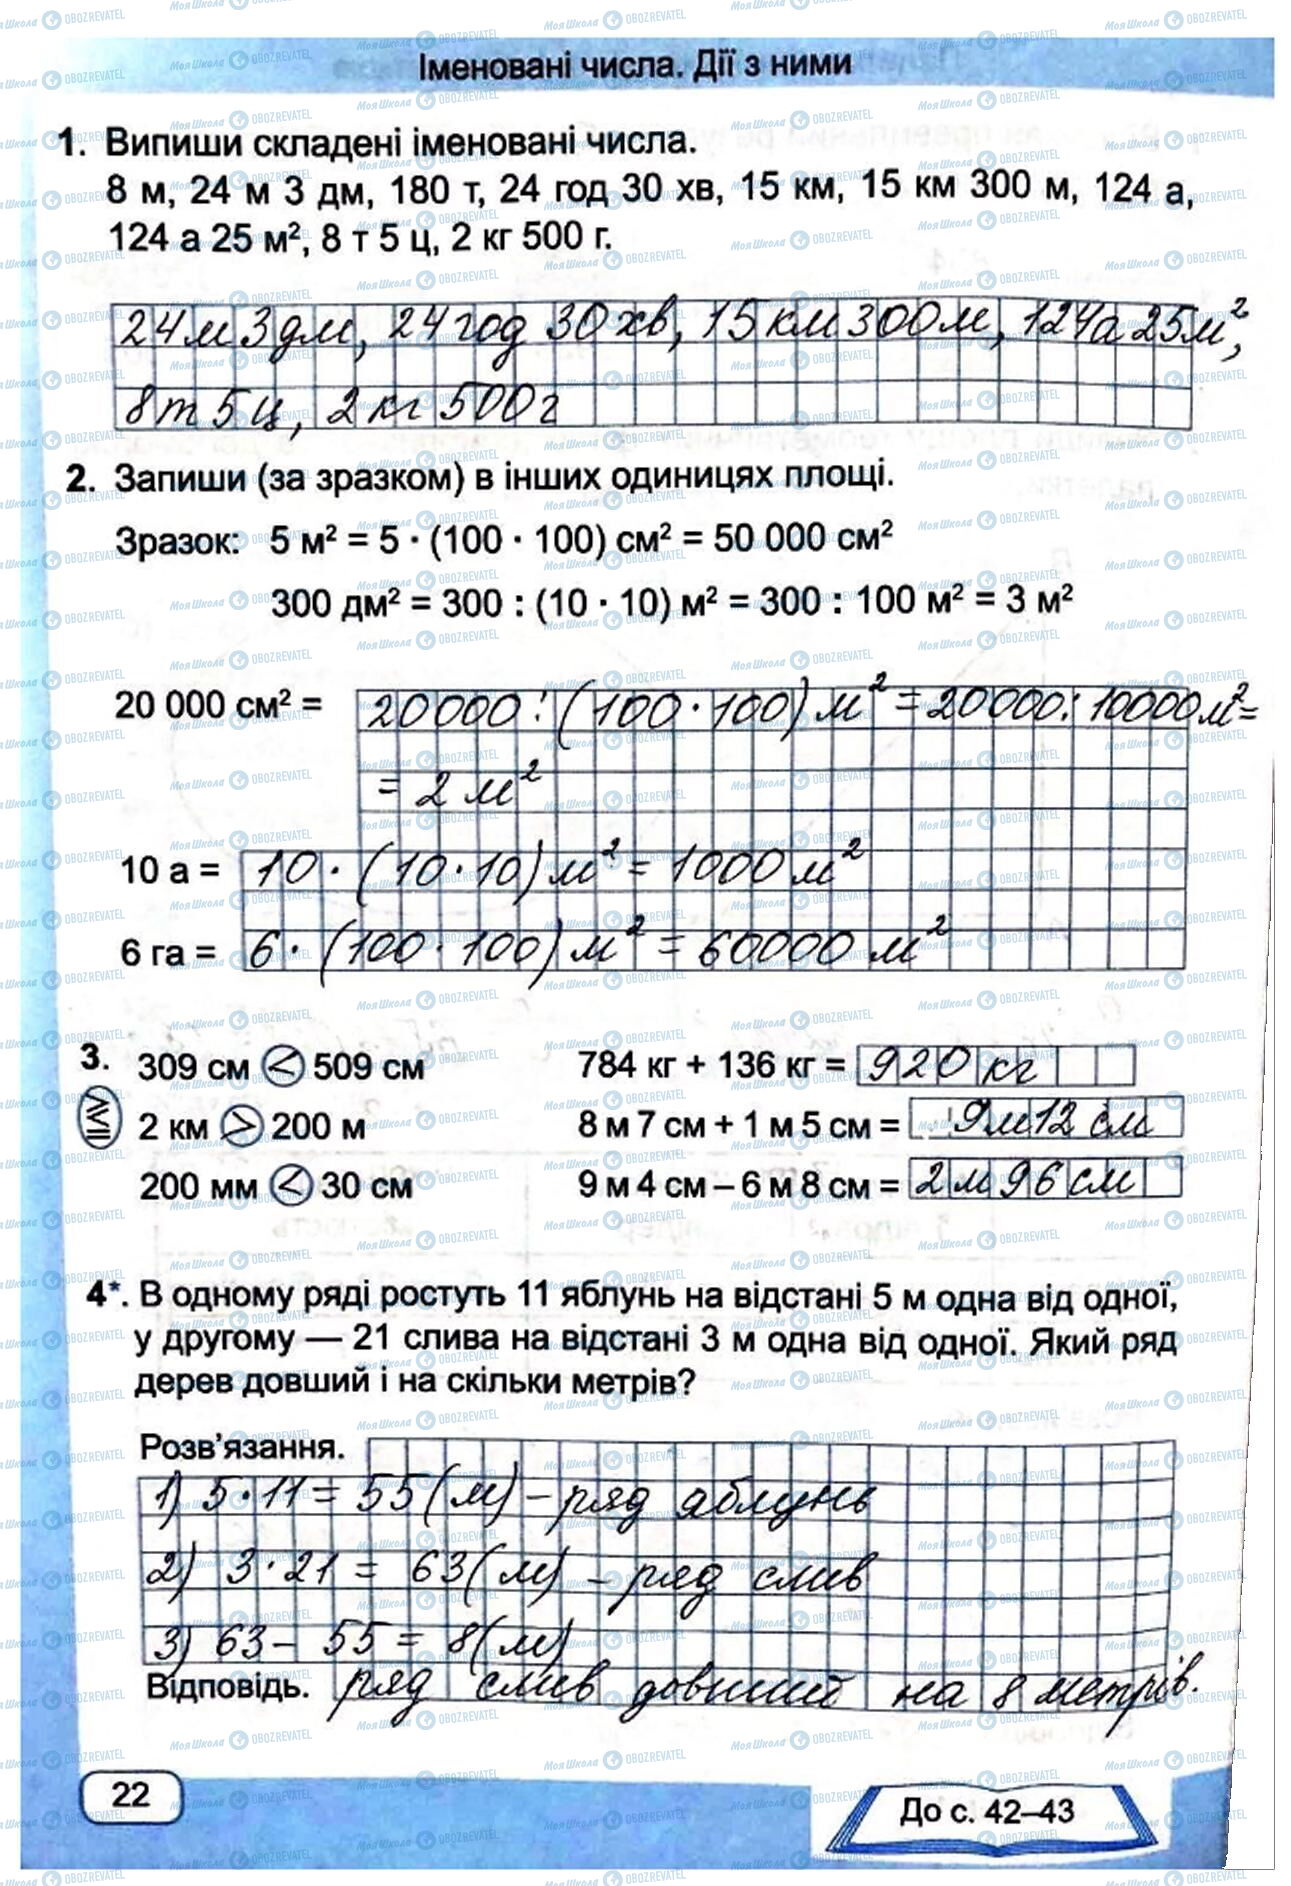 Іменовані числа. Дії з ними
1. Випиши складені іменовані числа.
8 м, 24 м 3 дм, 180 т, 24 год 30 хв, 15 км, 15 км 300 м, 124 а,
124 а 25 м², 8 т 5 ц, 2 кг 500 г.
24 м 3 дм, 24 год 30 хв, 15 км 300 м, 124 а 25 м²,
8 т 5 ц, 2 кг 500 г
2. Запиши (за зразком) в інших одиницях площі.
Зразок: 5 м² = 5 · (100 · 100) см² = 50 000 см²
300 дм² = 300 : (10 · 10) м² = 300 : 100 м² = 3 м²
20 000 см² = 20000 : (100 · 100) м² = 20000 : 10000 м² =
= 2 м²
10 а = 10 · (10 · 10) м² = 1000 м²
6 га = 6 · (100 · 100) м² = 60000 м²
3. 309 см < 509 см 784 кг + 136 кг = 920 кг
2 км > 200 м 8 м 7 см + 1 м 5 см = 9 м 12 см
200 мм < 30 см 9 м 4 см – 6 м 8 см = 2 м 96 см
4*. В одному ряді ростуть 11 яблунь на відстані 5 м одна від одної,
у другому — 21 слива на відстані 3 м одна від одної. Який ряд
дерев довший і на скільки метрів?
Розв'язання.
1) 5 · 11 = 55 (м) – ряд яблунь
2) 3 · 21 = 63 (м) – ряд слив
3) 63 – 55 = 8 (м)
Відповідь. ряд слив довший на 8 метрів.
22
До с. 42–43
МояШкола OBOZREVATEL